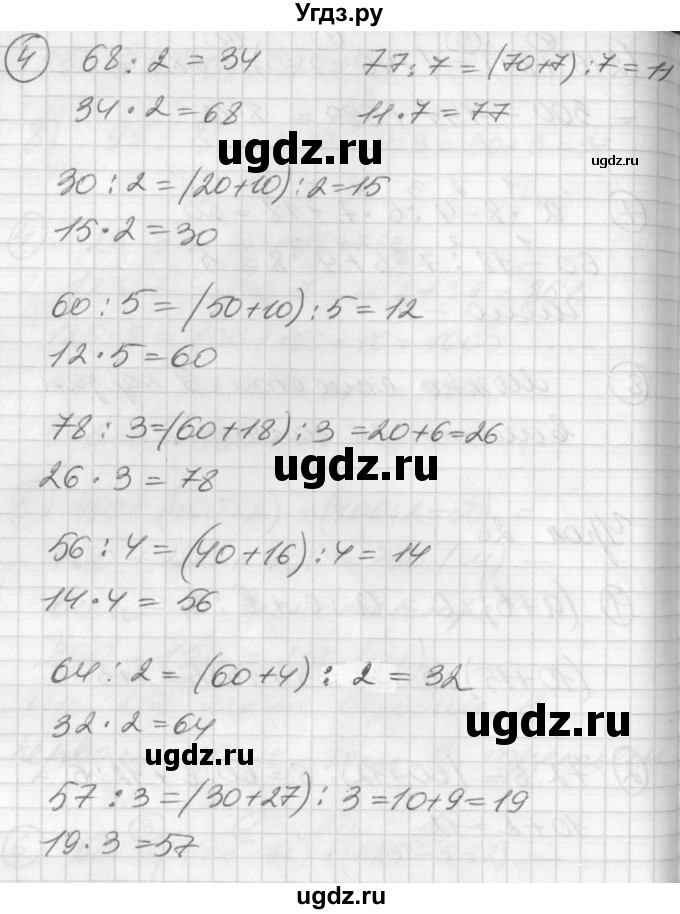 Угдз.ру
④ 68 : 2 = 34 77 : 7 = (70+7) : 7 = 11
34 · 2 = 68 11 · 7 = 77
ugdz.ru
ugdz.ru
30 : 2 = (20+10) : 2 = 15
15 · 2 = 30
60 : 5 = (50+10) : 5 = 12
12 · 5 = 60
78 : 3 = (60+18) : 3 = 20+6 = 26
ugdz.ru
26 · 3 = 78
56 : 4 = (40+16) : 4 = 14
14 · 4 = 56
64 : 2 = (60+4) : 2 = 32
32 · 2 = 64
ugdz.ru
ugdz.ru
57 : 3 = (30+27) : 3 = 10+9 = 19
19 · 3 = 57
ugdz.ru